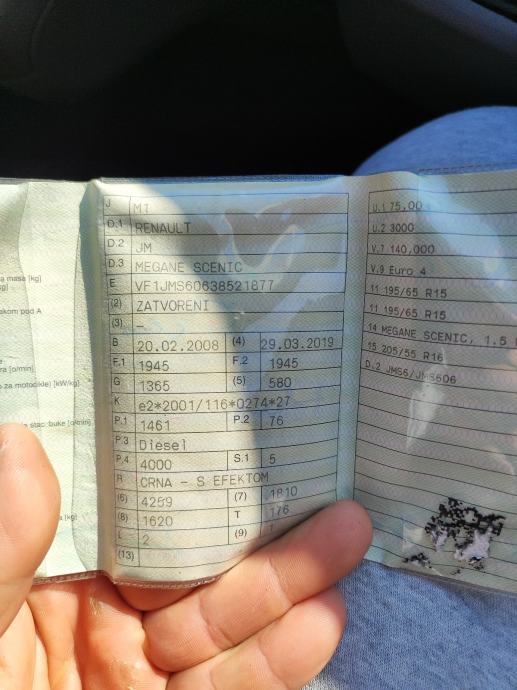 a masa [kg]
g]
akom pod A
ra [o/min]
o za motocikle) [kW/kg]
stac. buke [o/min]
[kg]
J M1
D.1 RENAULT
D.2 JM
D.3 MEGANE SCENIC
E VF1JMS60638521877
(2) ZATVORENI
(3) –
B 20.02.2008 (4) 29.03.2019
F.1 1945 F.2 1945
G 1365 (5) 580
K e2*2001/116*0274*27
P.1 1461 P.2 76
P.3 Diesel
P.4 4000 S.1 5
R CRNA - S EFEKTOM
(6) 4259 (7) 1810
(8) 1620 T 176
L 2 (9)
(13)
U.1 75,00
U.2 3000
V.7 140,000
V.9 Euro 4
11 195/65 R15
11 195/65 R15
14 MEGANE SCENIC, 1.5
15 205/55 R16
D.2 JMS6/JMS606